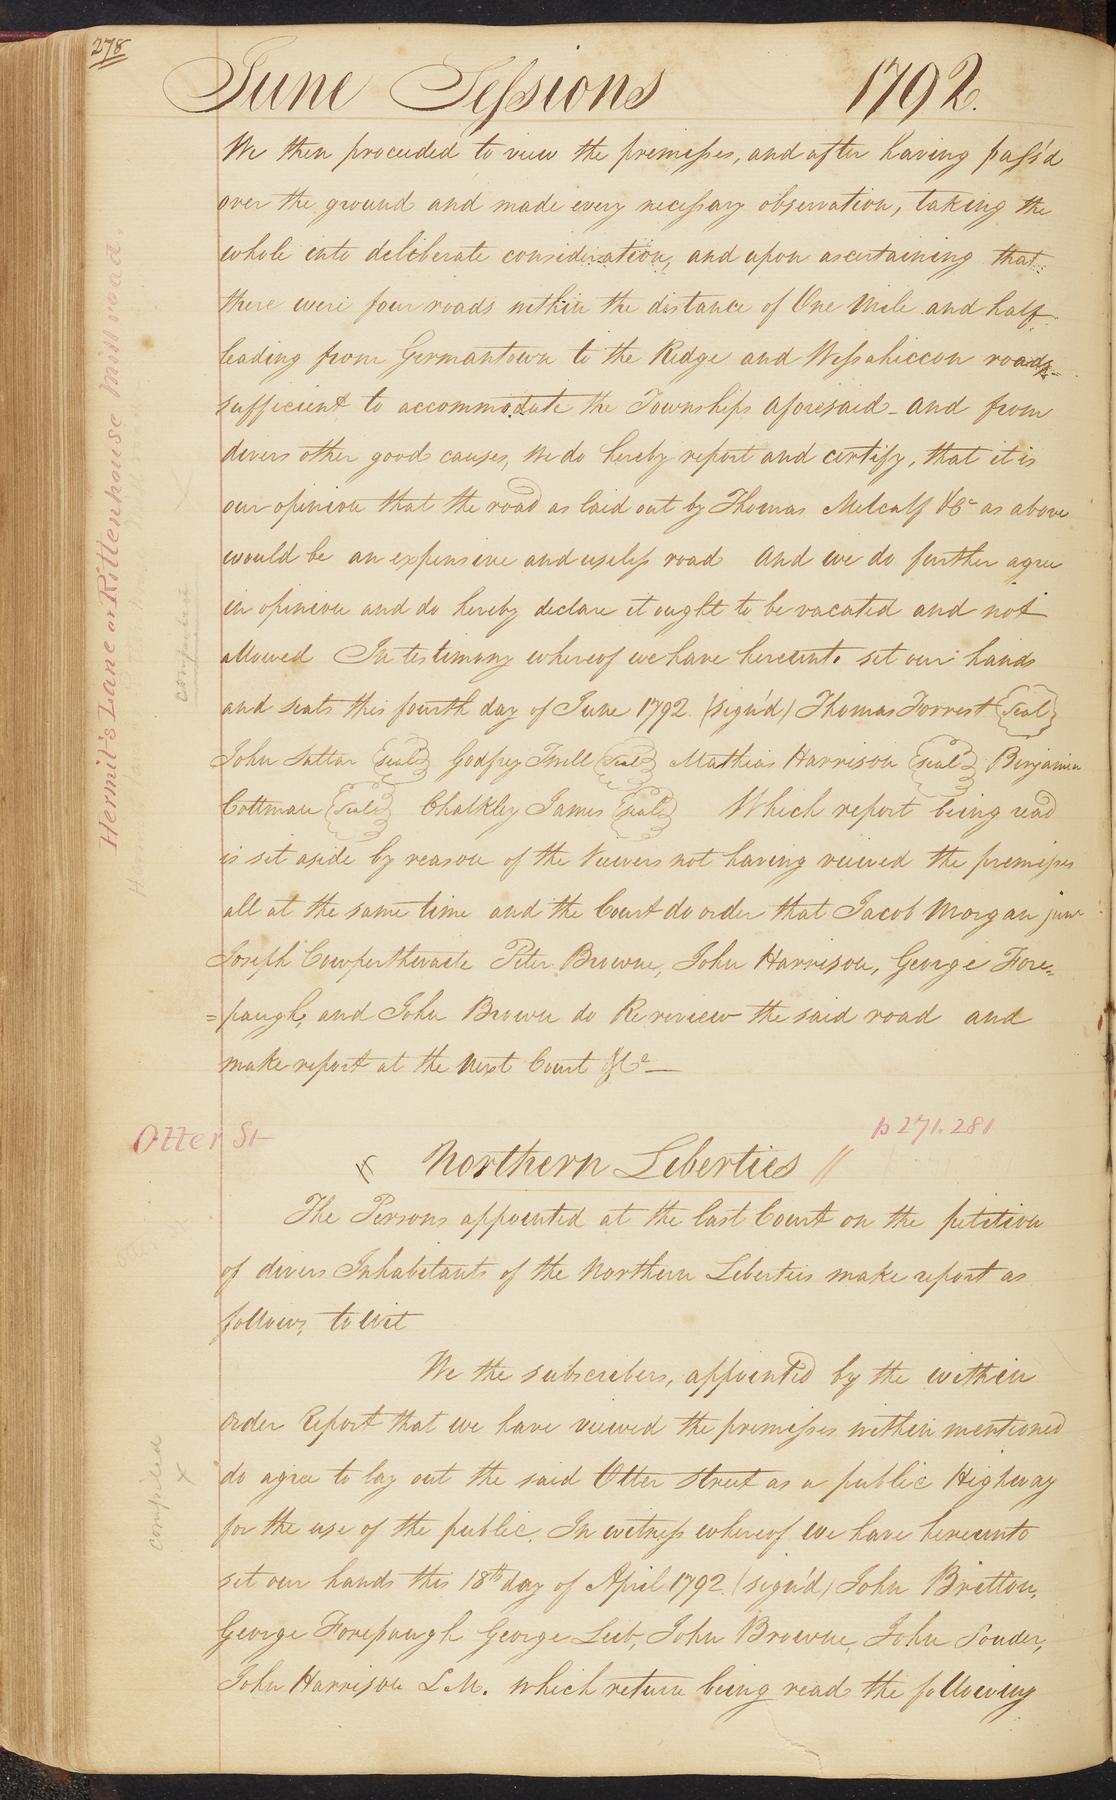 278
June Sessions 1792.
We then proceeded to view the premisses, and after having pass'd
over the ground and made every necessary observation, taking the
whole into deliberate consideration, and upon ascertaining that
there were four roads within the distance of One Mile and half
leading from Germantown to the Ridge and Wessahiccon roads
sufficient to accommodate the Townships aforesaid - and from
divers other good causes, We do hereby report and certify, that it is
our opinion that the road as laid out by Thomas Metcalf &c as above
would be an expensive and useless road And we do further agree
in opinion and do hereby declare it ought to be vacated and not
allowed In testimony whereof we have hereunto set our hands
and seals this fourth day of June 1792 (sign'd) Thomas Forrest seal
John seal Godfrey seal Mathias Harrison seal Benjamin
Cottman seal Chalkley James seal Which report being read
is set aside by reason of the Viewers not having viewed the premisses
all at the same time and the Court do order that Jacob Morgan junr
Joseph Cowperthwaite Peter Browne, John Harrison, George Fore=
=paugh, and John Brown do Rereview the said road and
make report at the Next Court &c —
Hermit's Lane or Rittenhouse Mill road.
compared
Otter St
p 271. 281
Northern Liberties //
The Persons appointed at the last Court on the petition
of divers Inhabitants of the Northern Liberties make report as
follows, to Wit
We the subscribers, appointed by the within
Order Report that we have viewed the premisses within mentioned
do agree to lay out the said Otter Street as a public Highway
for the use of the public. In witness whereof we have hereunto
set our hands this 18th day of April 1792 (sign'd) John Britton,
George Forepaugh George Leib, John Browne, John Souder,
John Harrison L.M. which return being read the following
compiled
x